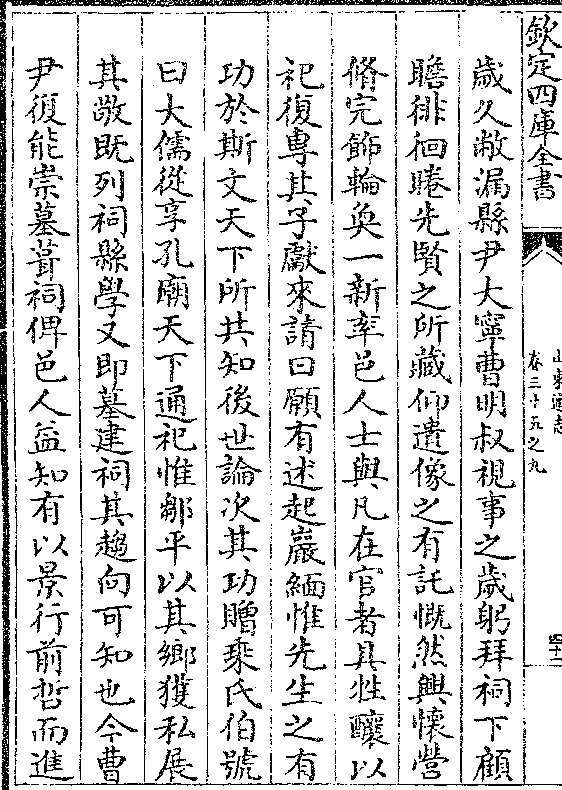 欽定四庫全書
山東通志
卷三十五之九
四十二
歲久敝漏縣尹大寧曹明叔視事之歲躬拜祠下顧
瞻徘徊睠先賢之所藏仰遺像之有託慨然興懷營
脩完飾輪奐一新率邑人士與凡在官者具牲釀以
祀復專其子獻來請曰願有述起巖緬惟先生之有
功於斯文天下所共知後世論次其功贈乘氏伯號
曰大儒從享孔廟天下通祀惟鄒平以其鄉獲私展
其敬既列祠縣學又即墓建祠其趨向可知也今曹
尹復能崇墓葺祠俾邑人益知有以景行前哲而進